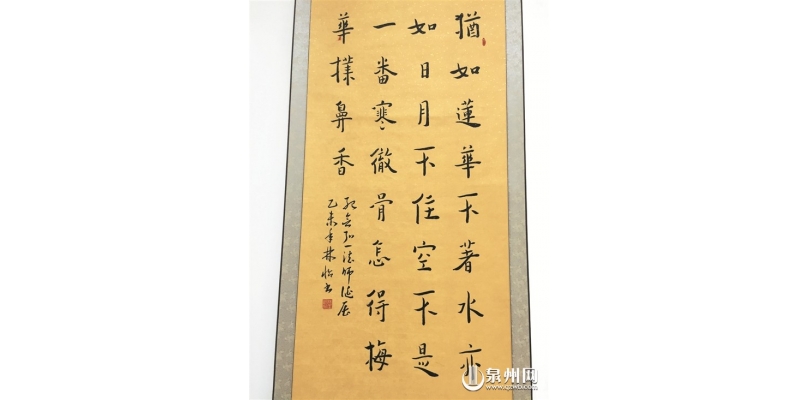 猶如蓮華不著水亦
如日月不住空不是
一番寒徹骨怎得梅
華撲鼻香
弘一法師
乙未年林怡书
泉州网
www.qzwb.com